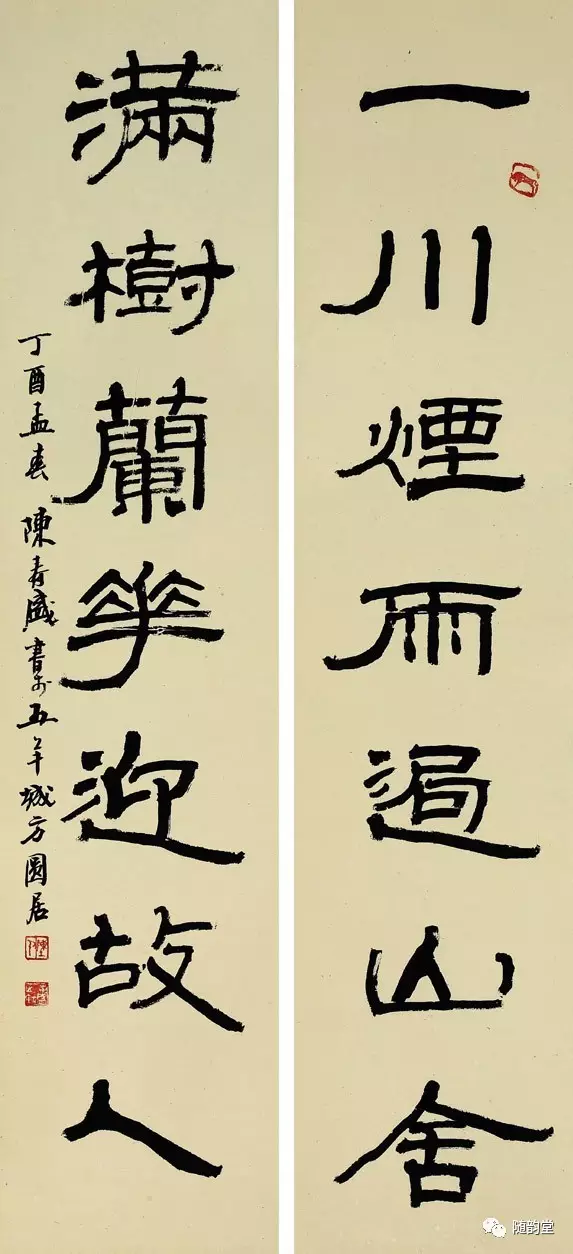 一川煙雨過山舍
滿樹蘭花迎故人
丁酉孟春 陳青盛書於五羊城方圓居
随韵堂